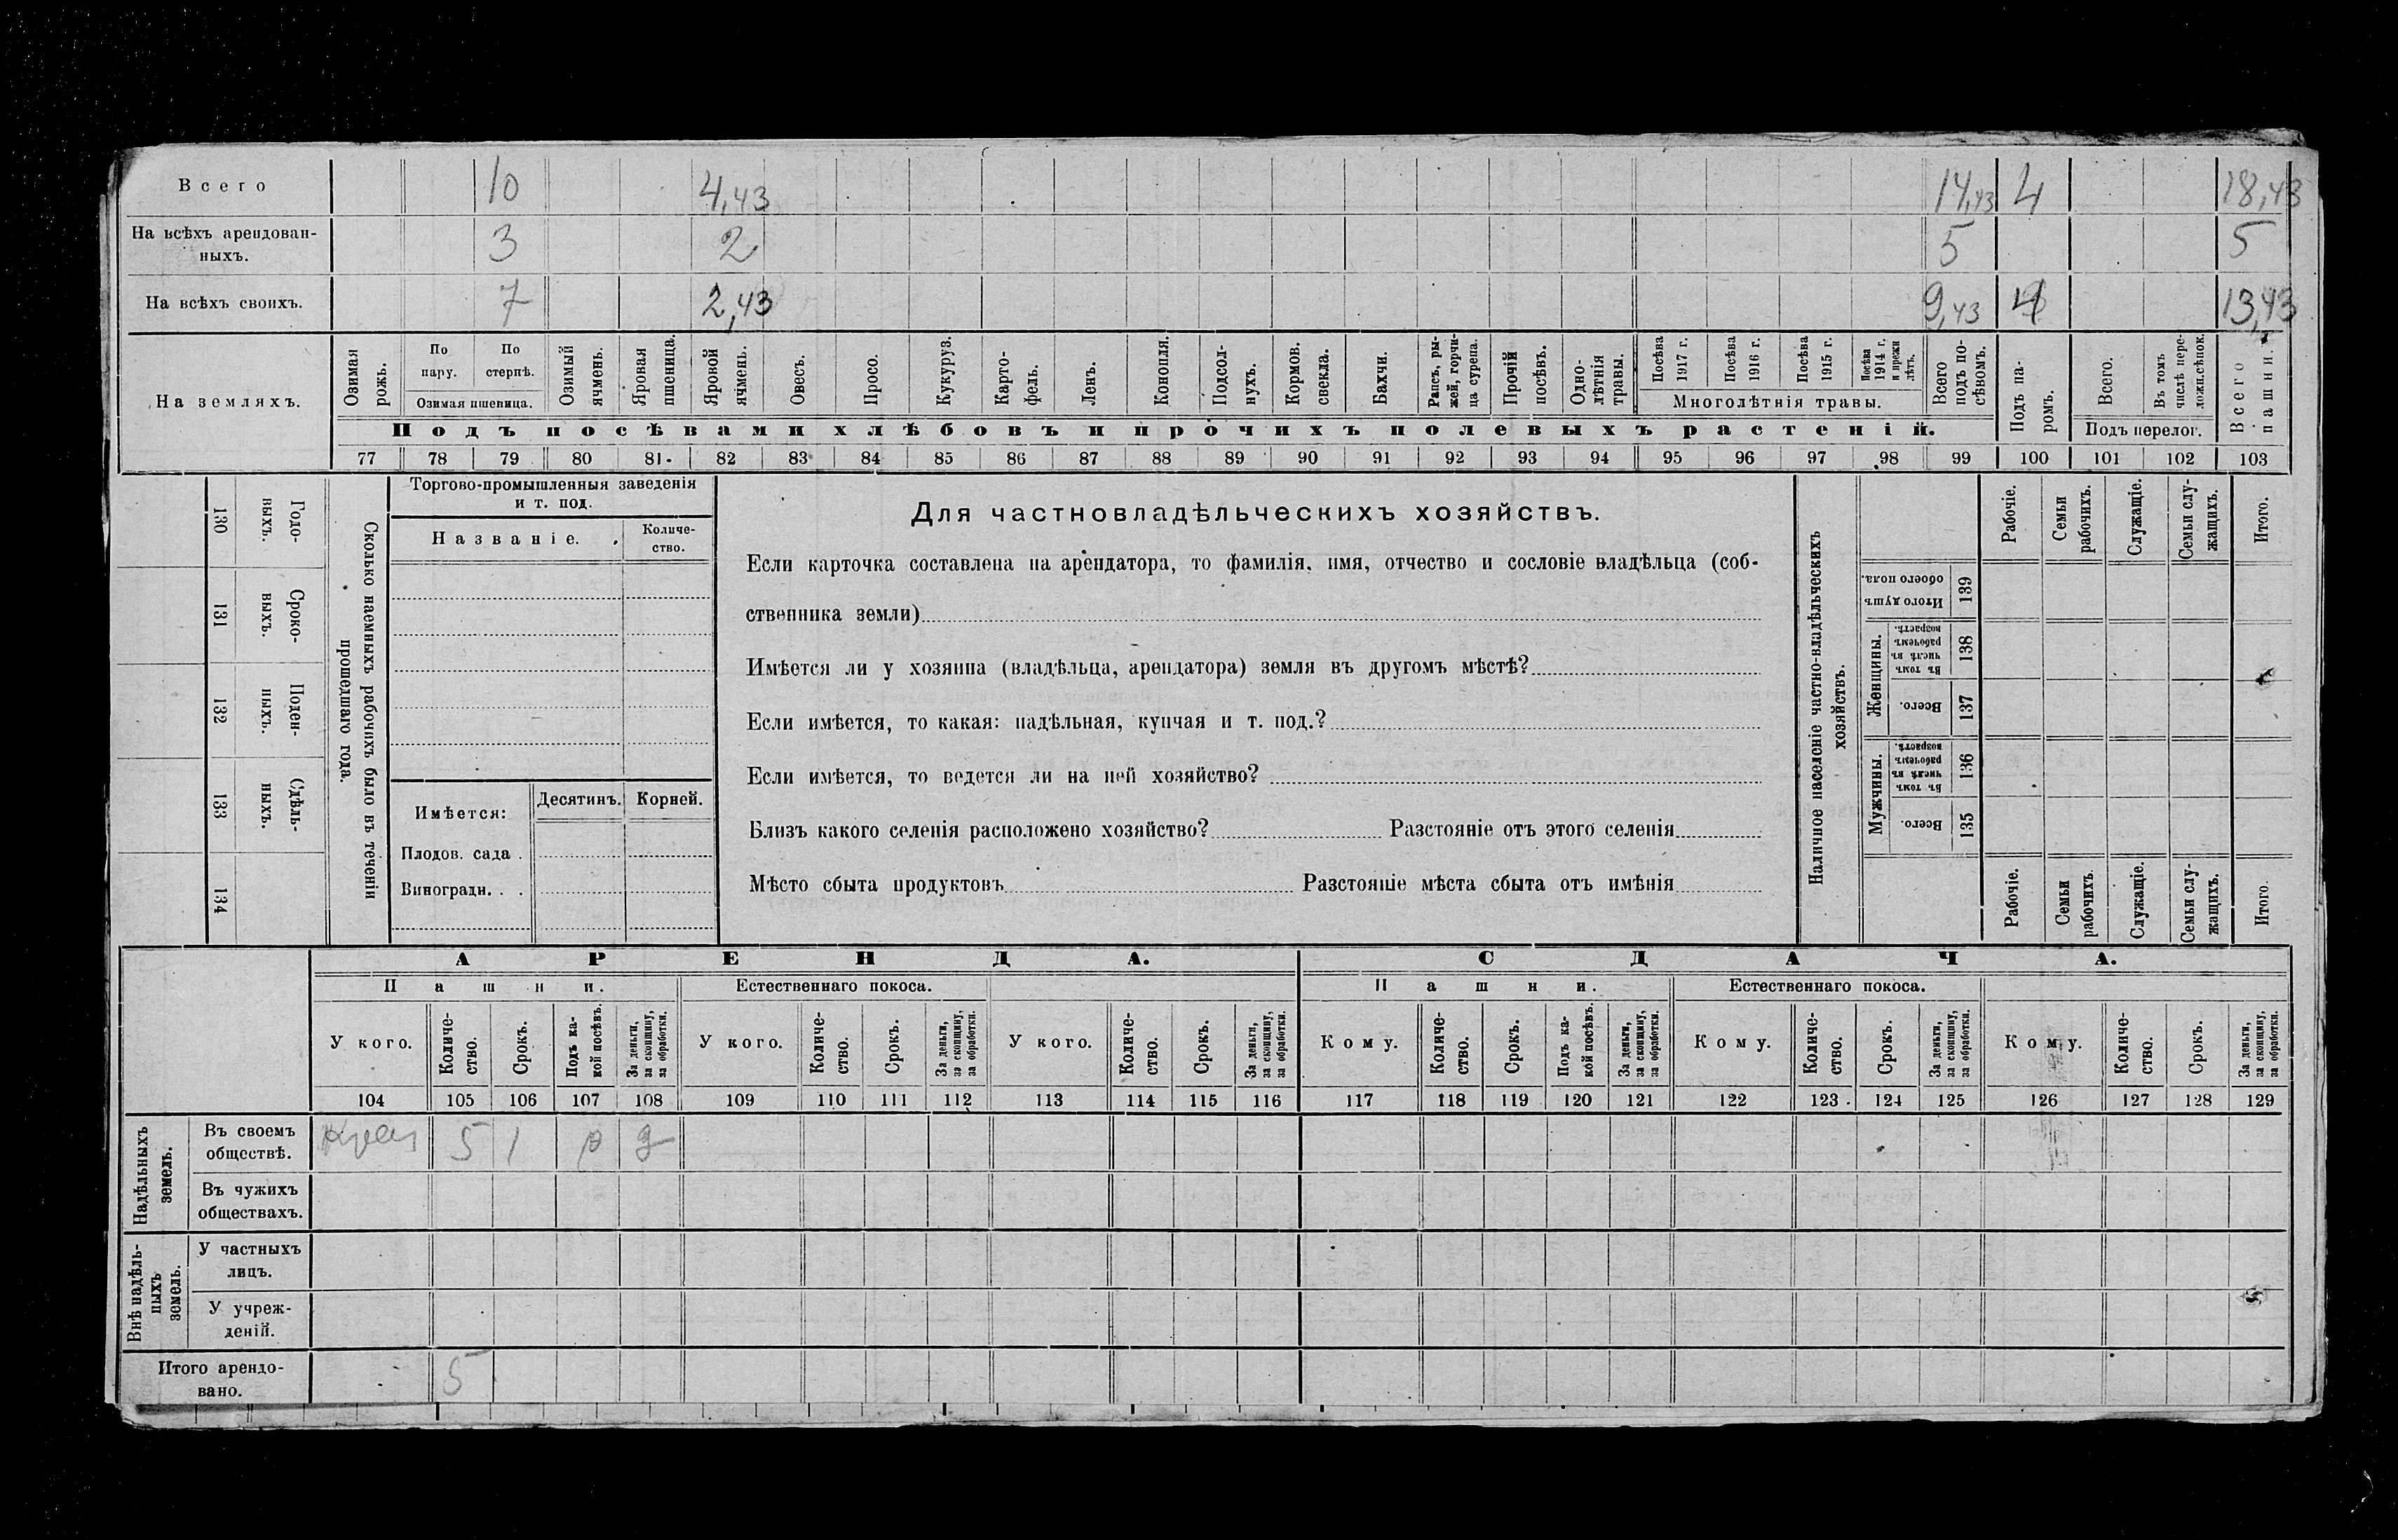 Всего 10 4,43 14,43 4 18,43
На всѣхъ арендован- 3 2 5 5
ныхъ.
На всѣхъ своихъ. 7 2,43 9,43 4 13,43
На земляхъ.
Озимая рожь.
По пару.
По стернѣ.
Озимая пшеница.
Озимый ячмень.
Яровая пшеница.
Яровой ячмень.
Овесъ.
Просо.
Кукуруз.
Карто-
фель.
Ленъ.
Конопля.
Подсол-
нухъ.
Кормов. свекла.
Бахчи.
Рапсъ, ры-
жей, горчи-
ца сурепа.
Прочій посѣвъ.
Одно-
лѣтнія травы.
Посѣва 1917 г.
Посѣва 1916 г.
Посѣва 1915 г.
Посѣва 1914 г. и прежн лѣтъ.
Многолѣтнія травы.
Всего подъ по-
сѣвомъ.
Подъ па-
ромъ.
Всего.
Въ томъ числѣ пере-
ложн.сѣнок.
Подъ перелог.
Всего пашни.
Подъ посѣвами хлѣбовъ и прочихъ полевыхъ растеній.
77 78 79 80 81 82 83 84 85 86 87 88 89 90 91 92 93 94 95 96 97 98 99 100 101 102 103
Сколько наемныхъ рабочихъ было въ теченіи
прошедшаго года.
Годо-
выхъ.
130
Сроко-
выхъ.
131
Поден-
ныхъ.
132
Сдѣль-
ныхъ.
133
134
Торгово-промышленныя заведенія
и т. под.
Названіе.
Количе-
ство.
Имѣется:
Десятинъ.
Корней.
Плодов. сада .
Виноградн. . .
Для частновладѣльческихъ хозяйствъ.
Если карточка составлена на арендатора, то фамилія, имя, отчество и сословіе владѣльца (соб-
ственника земли)
Имѣется ли у хозяина (владѣльца, арендатора) земля въ другомъ мѣстѣ?
Если имѣется, то какая: надѣльная, купчая и т. под.?
Если имѣется, то ведется ли на ней хозяйство?
Близъ какого селенія расположено хозяйство? Разстояніе отъ этого селенія
Мѣсто сбыта продуктовъ Разстояніе мѣста сбыта отъ имѣнія
Наличное населеніе частно-владѣльческихъ
хозяйствъ.
Рабочіе.
Семьи рабочихъ.
Служащіе.
Семьи слу-
жащихъ.
Итого.
Итого душъ обоего пола.
139
Женщины.
Въ томъ числѣ въ рабочемъ возрастѣ.
138
Всего.
137
Мужчины.
Въ томъ числѣ въ рабочемъ возрастѣ.
136
Всего.
135
Рабочіе.
Семьи рабочихъ.
Служащіе.
Семьи слу-
жащихъ.
Итого.
АРЕНДА. СДАЧА.
Пашни. Естественнаго покоса. Пашни. Естественнаго покоса.
У кого.
Количе-
ство.
Срокъ.
Подъ ка-
кой посѣвъ.
За деньги,
за скопщину,
за обработки.
У кого.
Количе-
ство.
Срокъ.
За деньги,
за скопщину,
за обработки.
У кого.
Количе-
ство.
Срокъ.
За деньги,
за скопщину,
за обработки.
Кому.
Количе-
ство.
Срокъ.
Подъ ка-
кой посѣвъ.
За деньги,
за скопщину,
за обработки.
Кому.
Количе-
ство.
Срокъ.
За деньги,
за скопщину,
за обработки.
Кому.
Количе-
ство.
Срокъ.
За деньги,
за скопщину,
за обработки.
104 105 106 107 108 109 110 111 112 113 114 115 116 117 118 119 120 121 122 123 124 125 126 127 128 129
Надѣльныхъ
земель.
Въ своемъ
обществѣ.
5 1
Въ чужихъ
обществахъ.
Внѣ надѣль-
ныхъ
земель.
У частныхъ
лицъ.
У учреж-
деній.
Итого арендо-
вано.
5